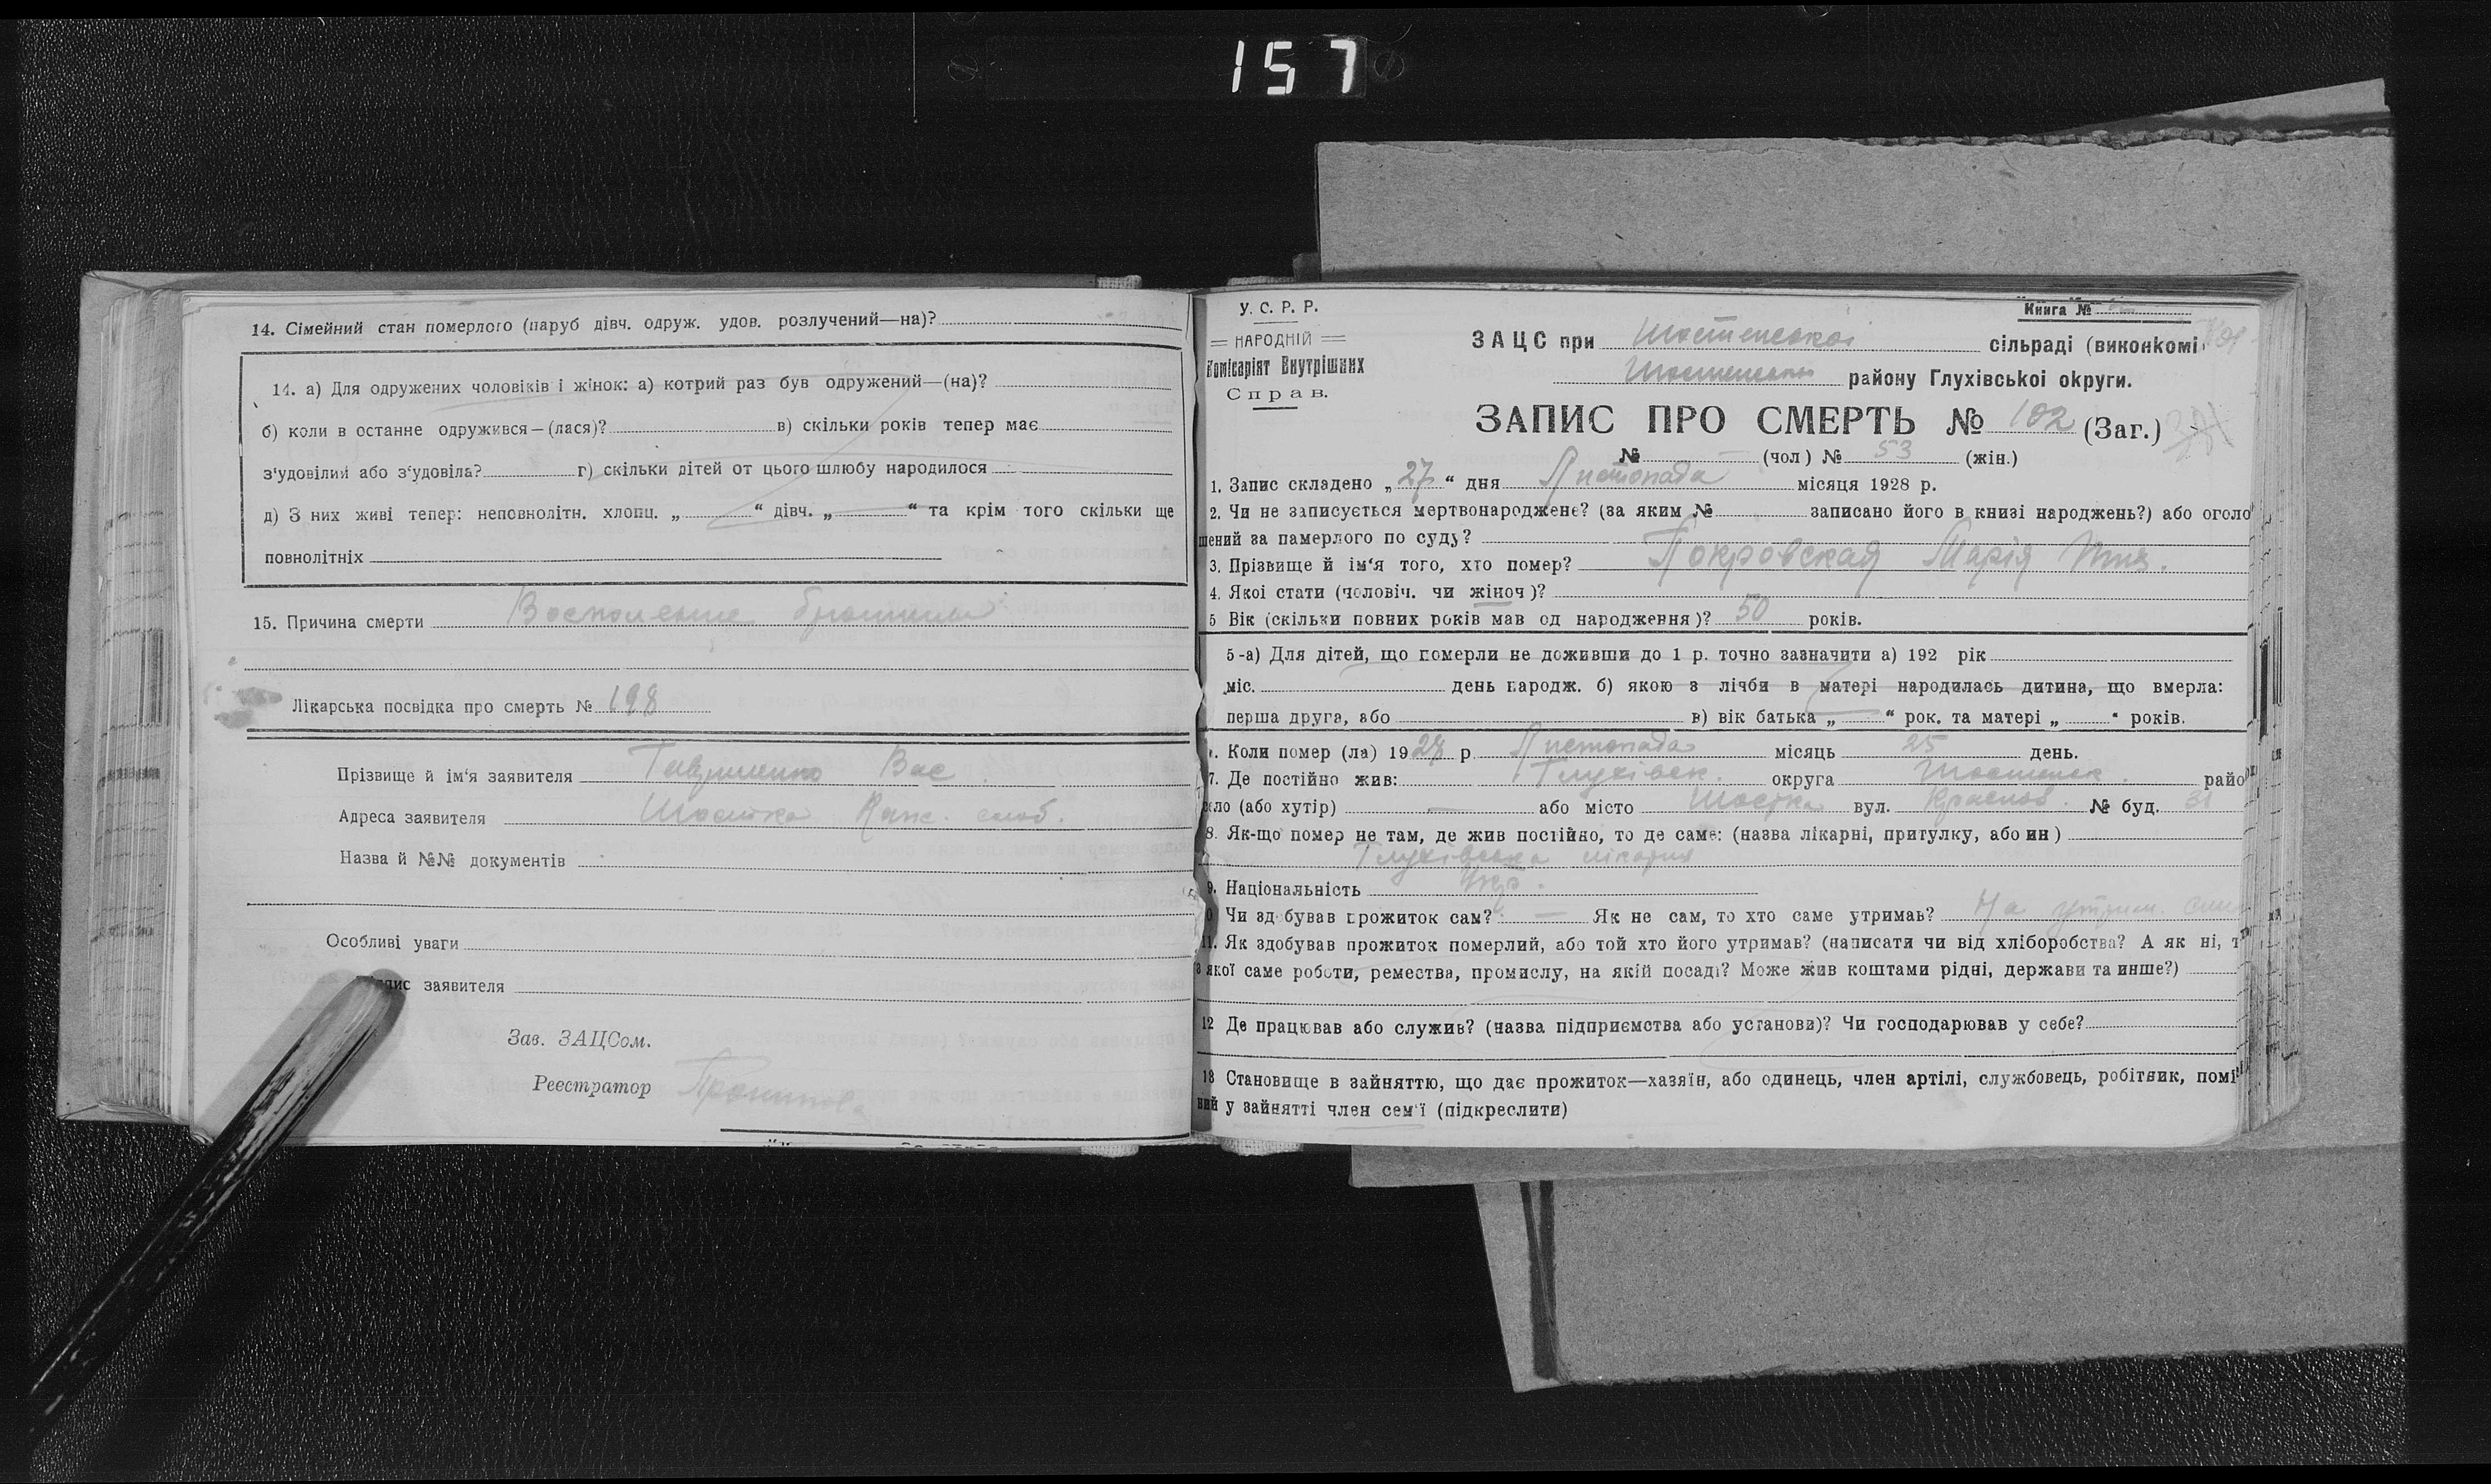 157
14. Сімейний стан померлого (паруб дівч. одруж. удов. розлучений—на)?
14. а) Для одружених чоловіків і жінок: а) котрий раз був одружений—(на)?
б) коли в останне одружився—(лася)? в) скільки років тепер має
з'удовілий або з'удовіла? г) скільки дітей от цього шлюбу народилося
д) З них живі тепер: неповнолітн. хлопц. „ “ дівч. „ “ та крім того скільки ще
повнолітніх
15. Причина смерти Восполение брюшины
Лікарська посвідка про смерть № 198
Прізвище й ім'я заявителя Гавриленко Вас.
Адреса заявителя Шостка слоб.
Назва й №№ документів
Особливі уваги
заявителя
Зав. ЗАЦСом.
Реєстратор
У. С. Р. Р.
НАРОДНІЙ
Комісаріят Внутрішних
Справ.
Книга №
ЗАЦС при Шостенської сільраді (виконкомі
Шостенськ району Глухівської округи.
ЗАПИС ПРО СМЕРТЬ № 102 (Заг.)
№ — (чол) № 53 (жін.)
1. Запис складено „27“ дня Листопада місяця 1928 р.
2. Чи не записується мертвонароджене? (за яким № записано його в книзі народжень?) або оголо
шений за памерлого по суду?
3. Прізвище й ім'я того, хто помер? Покровская Марія
4. Якої стати (чоловіч. чи жіноч)?
5 Вік (скільки повних років мав од народження)? 50 років.
5-а) Для дітей, що померли не доживши до 1 р. точно зазначити а) 192 рік
міс. день народж. б) якою з лічби в матері народилась дитина, що вмерла:
перша друга, або в) вік батька „ “ рок. та матері „ “ років.
Коли помер (ла) 1928 р. Листопада місяць 25 день.
7. Де постійно жив: Глухівськ. округа Шостенск. райо
ло (або хутір) — або місто Шостка вул. № буд. 31
8. Як-що помер не там, де жив постійно, то де саме: (назва лікарні, притулку, або ин)
Глухівська лікарня
9. Національність Укр.
Чи здобував прожиток сам? — Як не сам, то хто саме утримав? На утрим. сина
11. Як здобував прожиток померлий, або той хто його утримав? (написати чи від хліборобства? А як ні, т
якої саме роботи, ремества, промислу, на якій посаді? Може жив коштами рідні, держави та инше?)
12 Де працював або служив? (назва підприємства або установи)? Чи господарював у себе?
13 Становище в зайняттю, що дає прожиток—хазяїн, або одинець, член артілі, службовець, робітник, помі
ний у зайнятті член сем'ї (підкреслити)